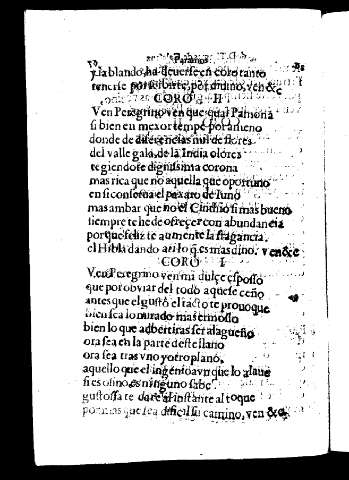 y la blando, ha de uerse en coro tanto
tenerse por soibirte, por indino, ven &c
CORO II
Ven Peregrino ven que qual Pamona
si bien en mexor tempe por ameno
donde de diferencias mil de flores
del valle gala, de la India olores
tegiendote dignissima corona
mas rica que no aquella que oportuno
en si conserua el paxaro de Iuno
mas ambar que no el Cindino si mas bueno
siempre te he de ofreçer con abundancia
porque feliz te aumente la fragancia,
el Hibla dando a tilo q es mas dino. ven &c
CORO I
Ven Peregrino ven mi dulçe esposso
que por obviar del todo aquese ceño
antes que el gusto el tacto te prouoque
bien sea lo mirado mas termosso
bien lo que adbertiras ser alagueño
ora sea en la parte deste llano
ora sea tras vno y otro plano,
aquello que el ingenio avn que lo alaue
si es osino, es ninguno sabe
gustossa te dare al instante al toque
por mas que sea dificil su camino, ven &c